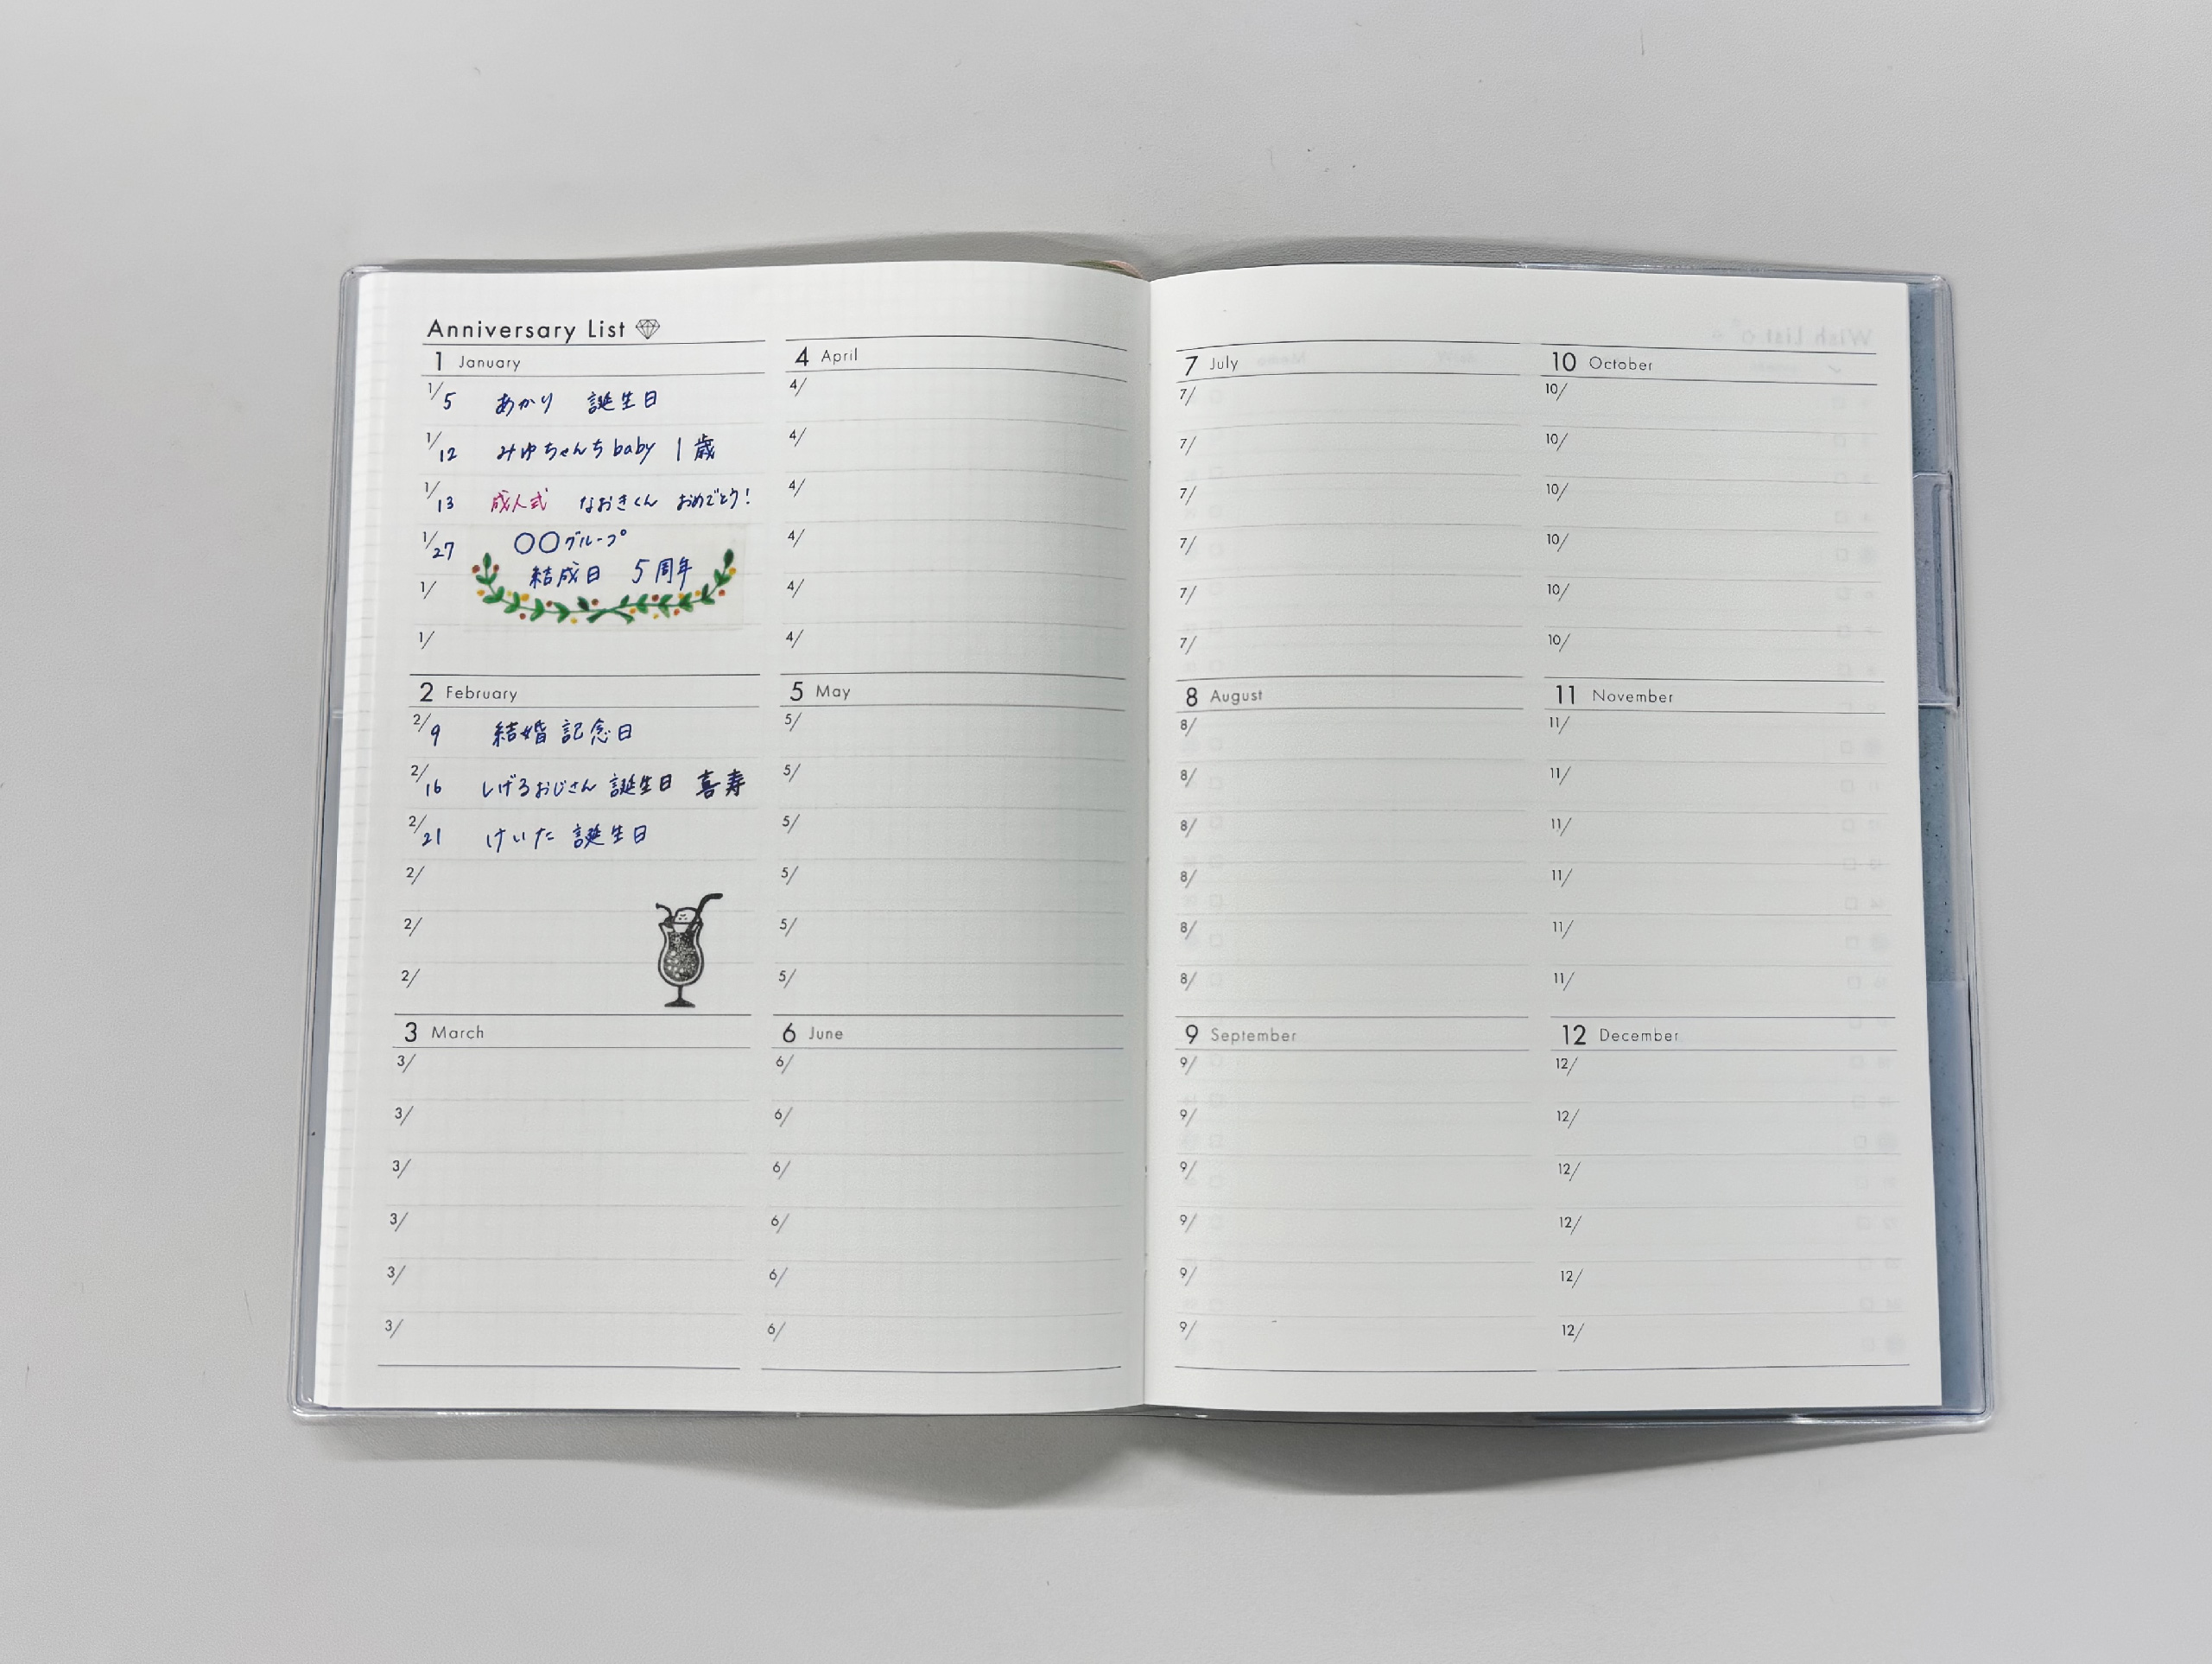 Anniversary List
1 January
1/5 あかり 誕生日
1/12 みゆちゃんち baby 1歳
1/13 成人式 なおきくん おめでとう!
1/27 〇〇グループ
結成日 5周年
1/
1/
2 February
2/9 結婚記念日
2/16 しげるおじさん 誕生日 喜寿
2/21 けいた 誕生日
2/
2/
2/
3 March
3/
3/
3/
3/
3/
3/
4 April
4/
4/
4/
4/
4/
4/
5 May
5/
5/
5/
5/
5/
5/
6 June
6/
6/
6/
6/
6/
6/
7 July
7/
7/
7/
7/
7/
7/
8 August
8/
8/
8/
8/
8/
8/
9 September
9/
9/
9/
9/
9/
9/
10 October
10/
10/
10/
10/
10/
10/
11 November
11/
11/
11/
11/
11/
11/
12 December
12/
12/
12/
12/
12/
12/